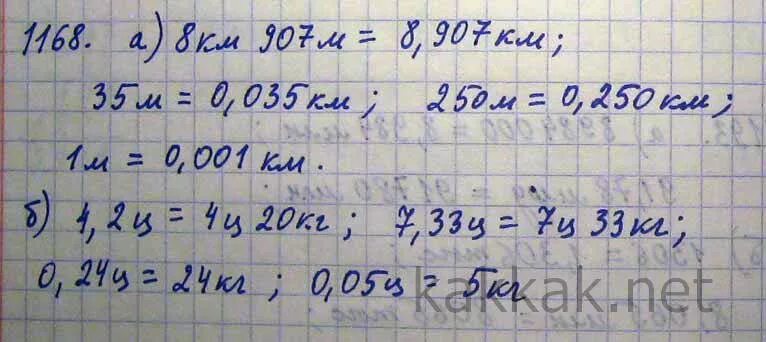 1168. а) 8км 907м = 8,907км;
35м = 0,035км; 250м = 0,250км;
1м = 0,001 км.
б) 4,2ц = 4ц 20кг; 7,33ц = 7ц 33кг;
0,24ц = 24кг; 0,05ц = 5кг
kakkak.net